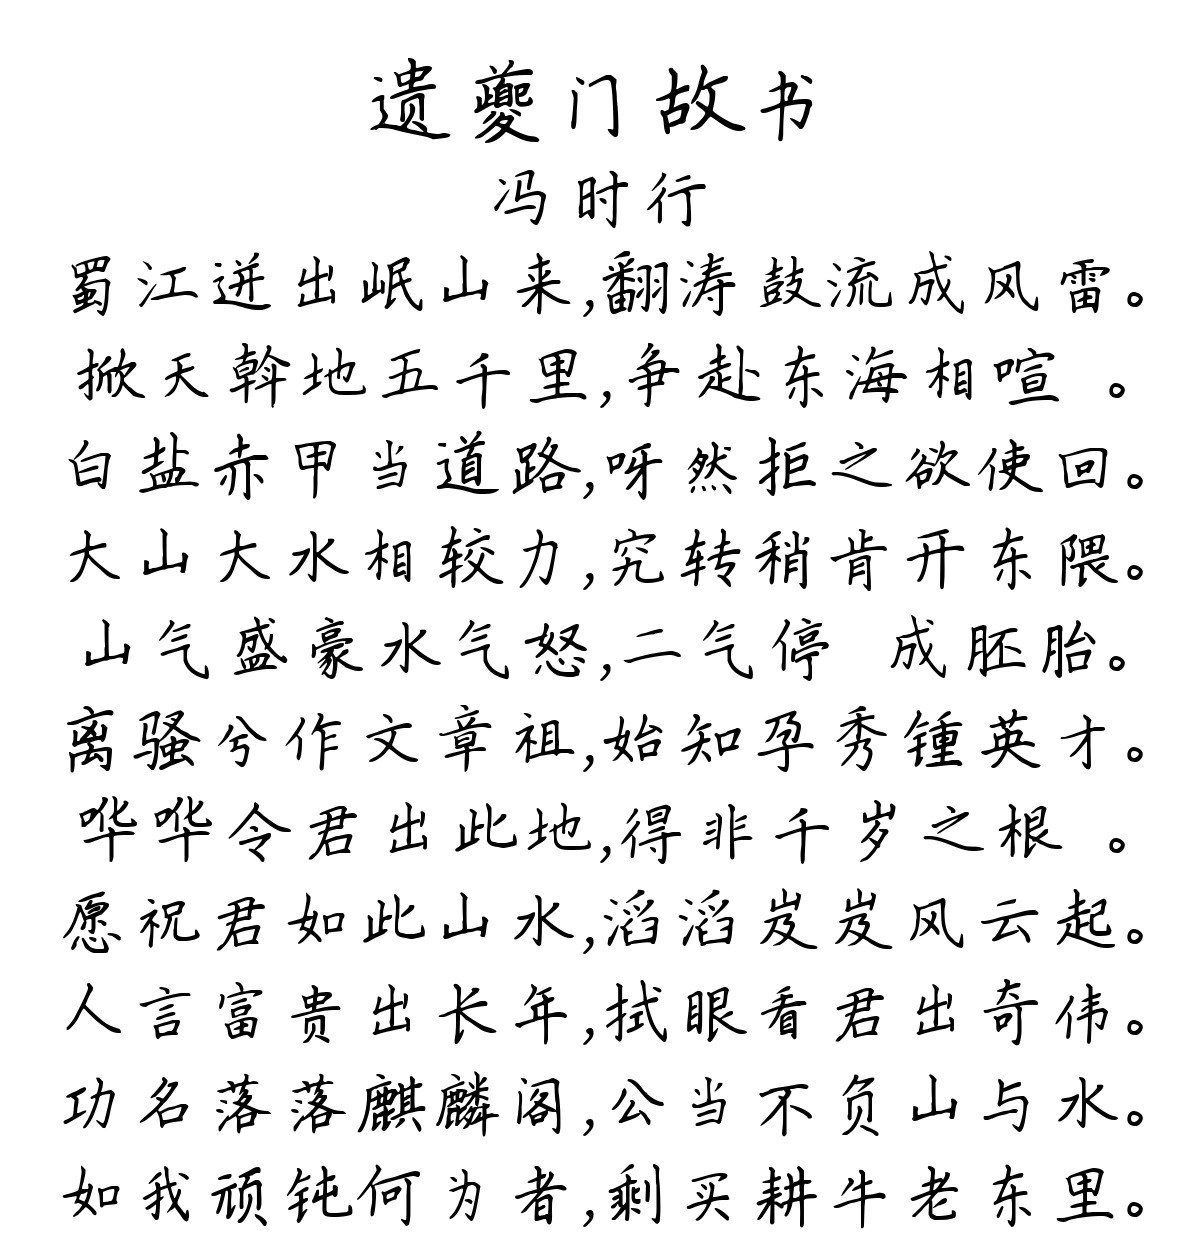 遗夔门故书
冯时行
蜀江迸出岷山来,翻涛鼓流成风雷。
掀天斡地五千里,争赴东海相喧 。
白盐赤甲当道路,呀然拒之欲使回。
大山大水相较力,究转稍肯开东隈。
山气盛豪水气怒,二气停 成胚胎。
离骚兮作文章祖,始知孕秀锺英才。
哗哗令君出此地,得非千岁之根 。
愿祝君如此山水,滔滔岌岌风云起。
人言富贵出长年,拭眼看君出奇伟。
功名落落麒麟阁,公当不负山与水。
如我顽钝何为者,剩买耕牛老东里。